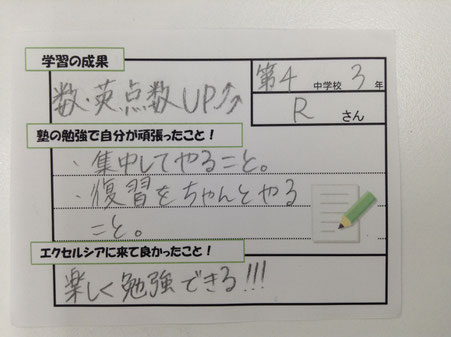 学習の成果
第4中学校 3年
数・英点数UP↑↑
Rさん
塾の勉強で自分が頑張ったこと！
・集中してやること。
・復習をちゃんとやる
こと。
エクセルシアに来て良かったこと！
楽しく勉強できる!!!